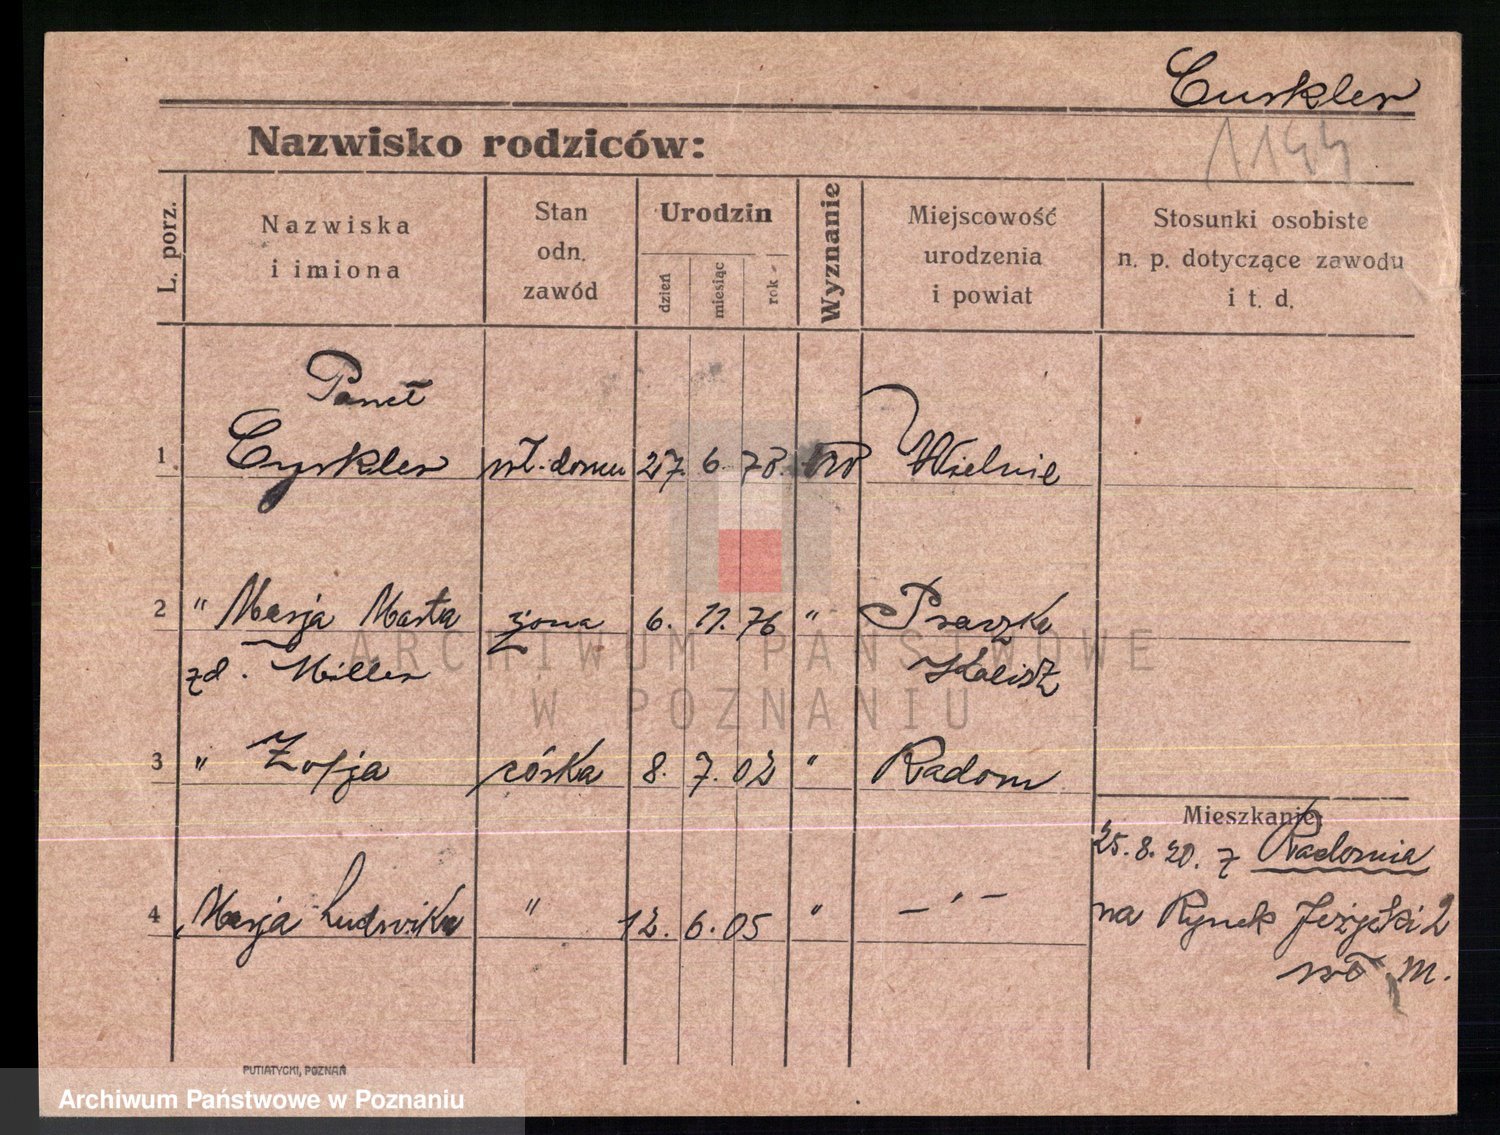 Curkler
1144
Nazwisko rodziców:
L. porz.
Nazwiska
i imiona
Stan
odn.
zawód
Urodzin
dzień
miesiąc
rok
Wyznanie
Miejscowość
urodzenia
i powiat
Stosunki osobiste
n. p. dotyczące zawodu
i t. d.
Paweł
1 Cyrkler wł. domu 27. 6. 78. Wielnie
2 " Marja Marta żona 6. 11. 76 " Praszka
zd. Miller Kalisz
3 " Zofja córka 8. 7. 02 " Radom
Mieszkanie:
25.8.20. z Radomia
4 Marja Ludwika " 12. 6. 05 " — " —
na Rynek Jeżycki 2
wł. m.
ARCHIWUM PAŃSTWOWE
W POZNANIU
PUTIATYCKI, POZNAŃ
Archiwum Państwowe w Poznaniu